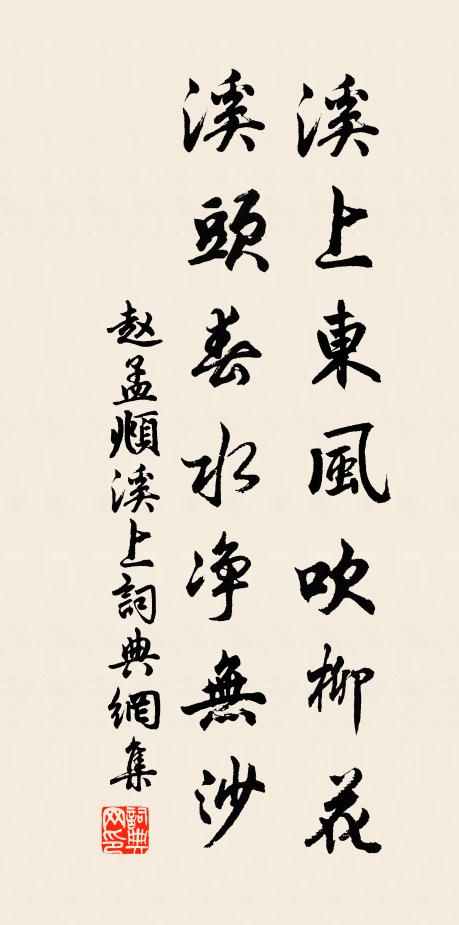 溪上東風吹柳花
溪頭春水净無沙
趙孟頫溪上詞典網集
詞典
网印